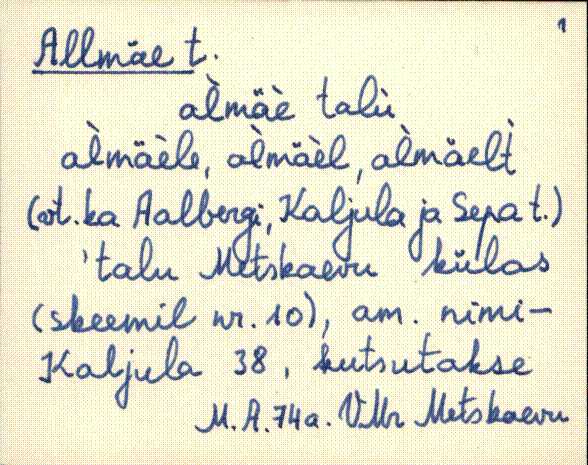 1
Allmäe t.
àlmäè talù
àlmäèle, àlmäèl, àlmäelt̀
(vt. ka Aalbergi, Kaljula ja Sepa t.)
'talu Metskaevu külas
(skeemil nr. 10), am. nimi-
Kaljula 38, kutsutakse
M.A. 74a. VMr Metskaevu